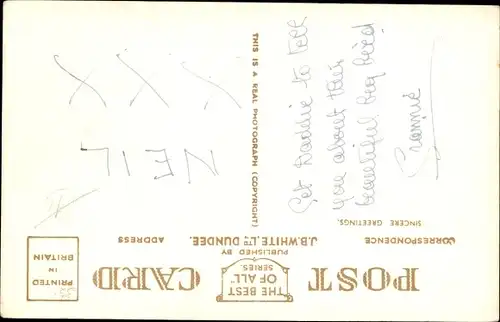 POST CARD
THE BEST
OF ALL
SERIES.
PUBLISHED BY
J.B.WHITE, LTD DUNDEE.
PRINTED
IN
BRITAIN
CORRESPONDENCE
ADDRESS
SINCERE GREETINGS.
Get Daddie to tell
you about this
beautiful big bird
Grannie
THIS IS A REAL PHOTOGRAPH (COPYRIGHT)
NEIL
X X X